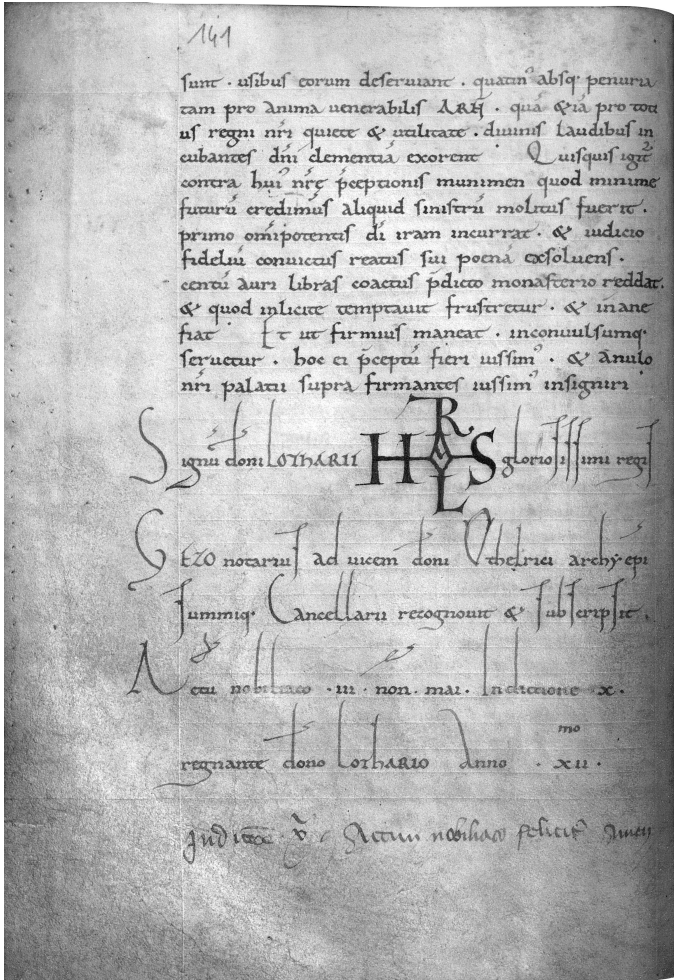 141
sunt · usibus eorum deserviant . quatin⁹ absq· penuria
tam pro anima venerabilis ARH̄ · quā &iā pro toti
us regni nr̄i quiete & utilitate . divinis laudibus in
cubantes dn̄i clementiā exorent Quisquis igit᷑
contra hui⁹ nr̄ę p̄ceptionis munimen quod minime
futurū credimus aliquid sinistrū molitus fuerit .
primo om̄ipotentis dī iram incurrat . & iudicio
fideliū convictus reatus sui poenā exsolvens .
centū auri libras coactus p̄dicto monasterio reddat.
& quod inlicite temptavit frustretur . & inane
fiat Et ut firmius maneat . inconvulsumq·
servetur . hoc ei p̄ceptū fieri iussim⁹ . & anulo
nr̄i palatii supra firmantes iussim⁹ insigniri
Signū dom̄i LOTHARII H R S L gloriosissimi regis
GEZO notarius ad vicem dom̄i Othelrici archyep̄i
summiq· Cancellarii recognovit & subscripsit .
Actu nobiliaco · iii · non · mai · Indictione x ·
regnante dom̄o LOTHARIO Anno · xii · mo
Indictōe · v̄ · Actum nobiliaco felicit᷑